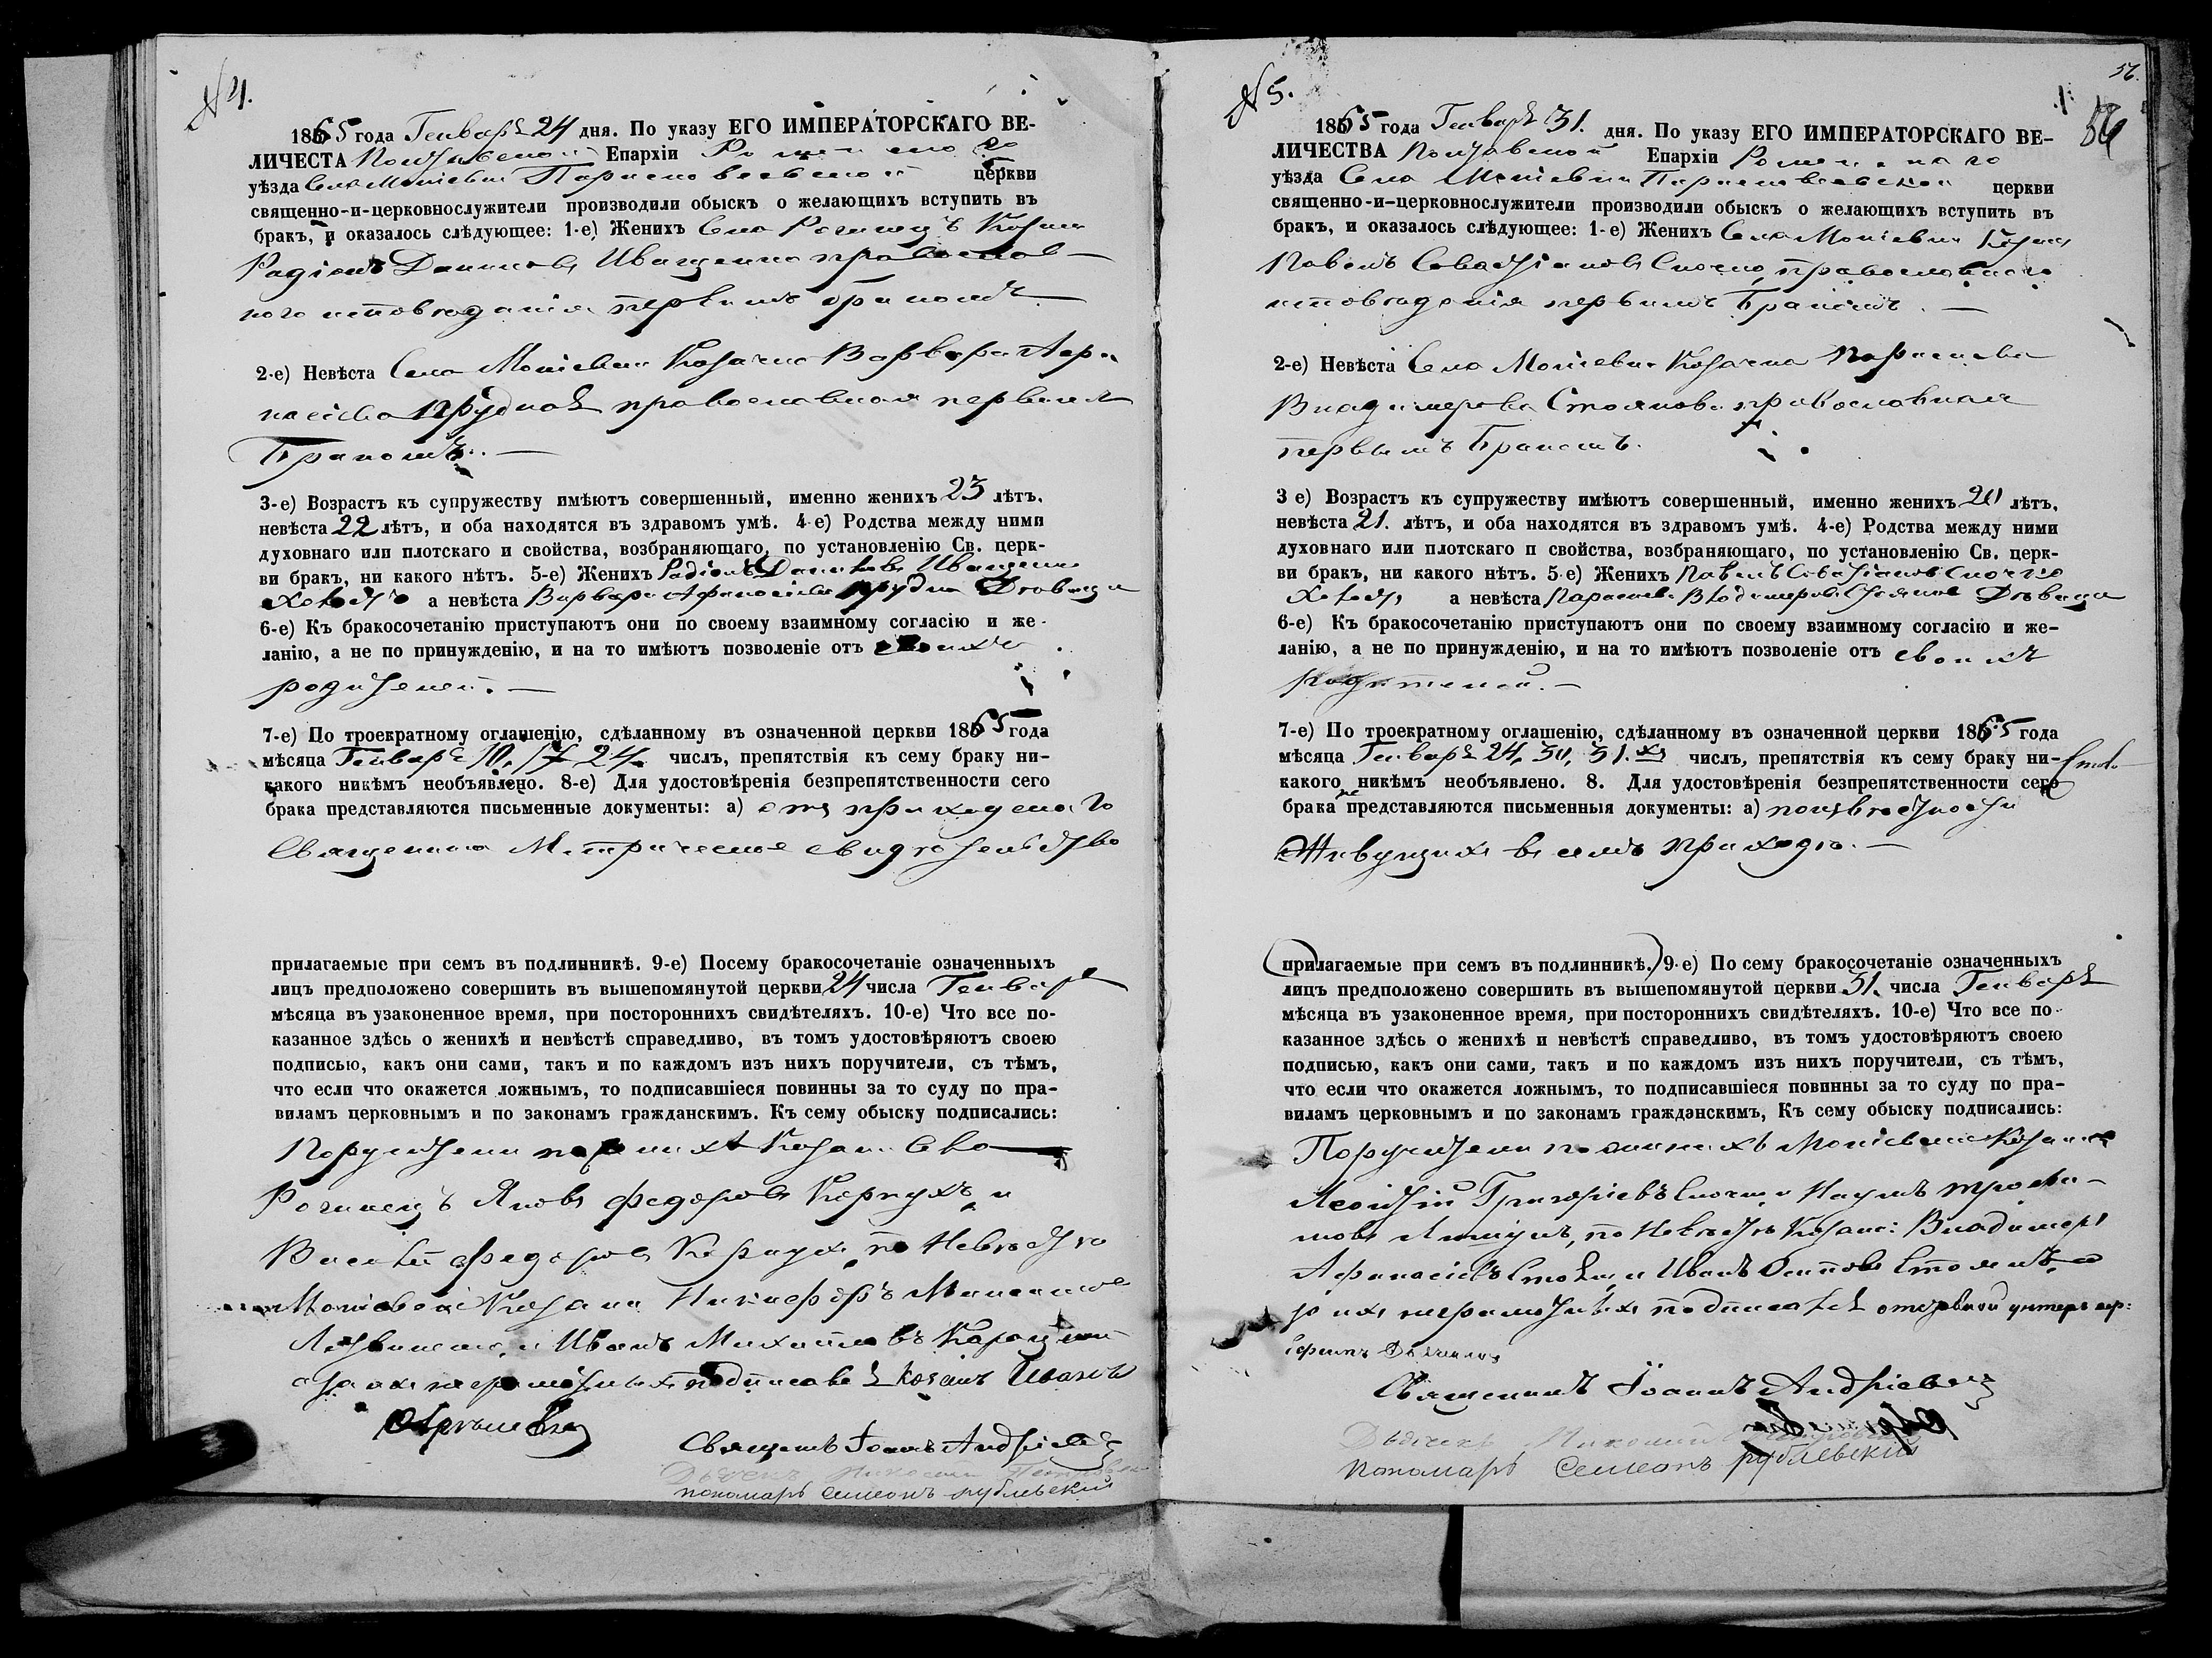 № 4.
1865 года Генваря 24 дня. По указу ЕГО ИМПЕРАТОРСКАГО ВЕ-
ЛИЧЕСТА Полтавской Епархіи Роменскаго
уѣзда Села Мокіевки Параскевіевской церкви
священно-и-церковнослужители производили обыскъ о желающихъ вступить въ
бракъ, и оказалось слѣдующее: 1-е) Женихъ Села Рогинецъ Козакъ
Радіонъ Даниловъ Иващенко православ-
ного исповѣданія первымъ бракомъ.
2-е) Невѣста Села Мокіевки Козачка Варвара Афа-
насіева Прудкая православная первымъ
Бракомъ.
3-е) Возрастъ къ супружеству имѣютъ совершенный, именно женихъ 23 лѣтъ.
невѣста 22 лѣтъ, и оба находятся въ здравомъ умѣ. 4-е) Родства между ними
духовнаго или плотскаго и свойства, возбраняющаго, по установленію Св. церк-
ви бракъ, ни какого нѣтъ. 5-е) Женихъ Радіонъ Даниловъ Иващенко
Холостъ а невѣста Варвара Афанасіева Прудка Дѣвица
6-е) Къ бракосочетанію приступаютъ они по своему взаимному согласію и же-
ланію, а не по принужденію, и на то имѣютъ позволеніе отъ своихъ
родителей.
7-е) По троекратному оглашенію, сдѣланному въ означенной церкви 1865 года
мѣсяца Генваря 10, 17 24. числъ, препятствія къ сему браку ни-
какого никѣмъ необъявлено. 8-е) Для удостовѣренія безпрепятственности сего
брака представляются письменные документы: а) отъ приходскаго
Священника Метрическое свидѣтельство
прилагаемые при семъ въ подлинникѣ. 9-е) Посему бракосочетаніе означенныхъ
лицъ предположено совершить въ вышепомянутой церкви 24 числа Генваря
мѣсяца въ узаконенное время, при постороннихъ свидѣтеляхъ. 10-е) Что все по-
казанное здѣсь о женихѣ и невѣстѣ справедливо, въ томъ удостовѣряютъ своею
подписью, какъ они сами, такъ и по каждомъ изъ нихъ поручители, съ тѣмъ,
что если что окажется ложнымъ, то подписавшіеся повинны за то суду по пра-
виламъ церковнымъ и по законамъ гражданскимъ. Къ сему обыску подписались:
Поручители Козаки Села
Рогинецъ Яковъ Федоровъ Корнухъ и
Василій Федоровъ Корнухъ, по Невѣстѣ
Мокіевскіе Козаки Никифоръ
Иванъ Михайловъ
а за ихъ неграмотныхъ подписався козакъ Иванъ
Священникъ Іоаннъ Андріевъ
Дьячекъ Николай Петровскій
пономарь Симеонъ Рублевскій
№ 5.
56.
56
1865 года Генваря 31. дня. По указу ЕГО ИМПЕРАТОРСКАГО ВЕ-
ЛИЧЕСТВА Полтавской Епархіи Роменскаго
уѣзда Села Мокіевки Параскевіевской церкви
священно-и-церковнослужители производили обыскъ о желающихъ вступить въ
бракъ, и оказалось слѣдующее: 1-е) Женихъ Села Мокіевки Козакъ
Павелъ Савастіановъ православнаго
исповѣданія первымъ Бракомъ.
2-е) Невѣста Села Мокіевки Козачка Параскева
Владимерова Стоянова православная
первымъ Бракомъ.
3 е) Возрастъ къ супружеству имѣютъ совершенный, именно женихъ 20 лѣтъ,
невѣста 21. лѣтъ, и оба находятся въ здравомъ умѣ. 4-е) Родства между ними
духовнаго или плотскаго п свойства, возбраняющаго, по установленію Св. церк-
ви бракъ, ни какого нѣтъ. 5 е) Женихъ Павелъ Савастіановъ
Холостъ а невѣста Параскева Владимерова Стоянова Дѣвица
6-е) Къ бракосочетанію приступаютъ они по своему взаимному согласію и же-
ланію, а не по принужденію, и на то имѣютъ позволеніе отъ своихъ
родителей.
7-е) По троекратному оглашенію, сдѣланному въ означенной церкви 1865 года
мѣсяца Генваря 24, 30, 31. числъ, препятствія къ сему браку ни-
какого никѣмъ необъявлено. 8. Для удостовѣренія безпрепятственности сего
брака не представляются письменныя документы: а) поизвѣстности
Живущихъ въ семъ приходѣ.
прилагаемые при семъ въ подлинникѣ. 9-е) По сему бракосочетаніе означенныхъ
лицъ предположено совершить въ вышепомянутой церкви 31. числа Генваря
мѣсяца въ узаконенное время, при постороннихъ свидѣтеляхъ. 10-е) Что все по-
казанное здѣсь о женихѣ и невѣстѣ справедливо, въ томъ удостовѣряютъ своею
подписью, какъ они сами, такъ и по каждомъ изъ нихъ поручители, съ тѣмъ,
что если что окажется ложнымъ, то подписавшіеся повинны за то суду по пра-
виламъ церковнымъ и по законамъ гражданскимъ, Къ сему обыску подписались:
Поручители по женихѣ Мокіевскіе Козаки
Леонтій Григоріевъ и Наумъ Трофи-
мовъ по Невѣстѣ Козаки: Владимеръ
Афанасіевъ Стоянъ и Иванъ Осиповъ Стоянъ, а
за ихъ неграмотныхъ подписался отставной унтеръ
Священникъ Іоаннъ Андріевъ
Дьячекъ Николай
пономарь Симеонъ Рублевскій